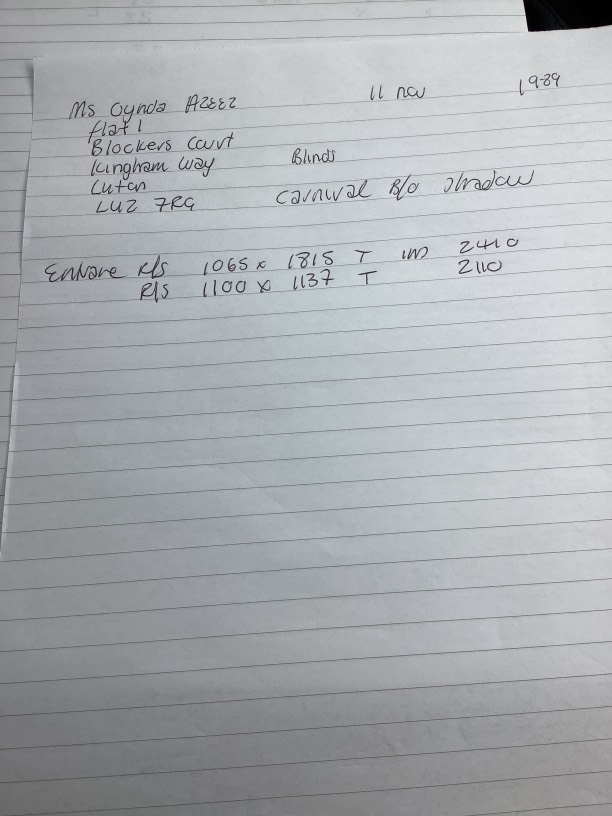 Ms Oynda Azeez 11 nov 19-89
flat 1
Blockers Court
Kingham way Blinds
Luton
LU2 7RG Carnival B/o shadow
R/S 1065 x 1815 T 2410
R/S 1100 x 1137 T 2110